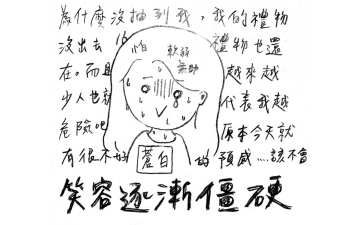 為什麼沒抽到我，我的禮物
沒出去 怕 軟弱 無助 禮物也還
在。而且 越來越
少人也就 代表我越
危險吧 原本今天就
有很不好 蒼白 的預感....該不會
笑容逐漸僵硬